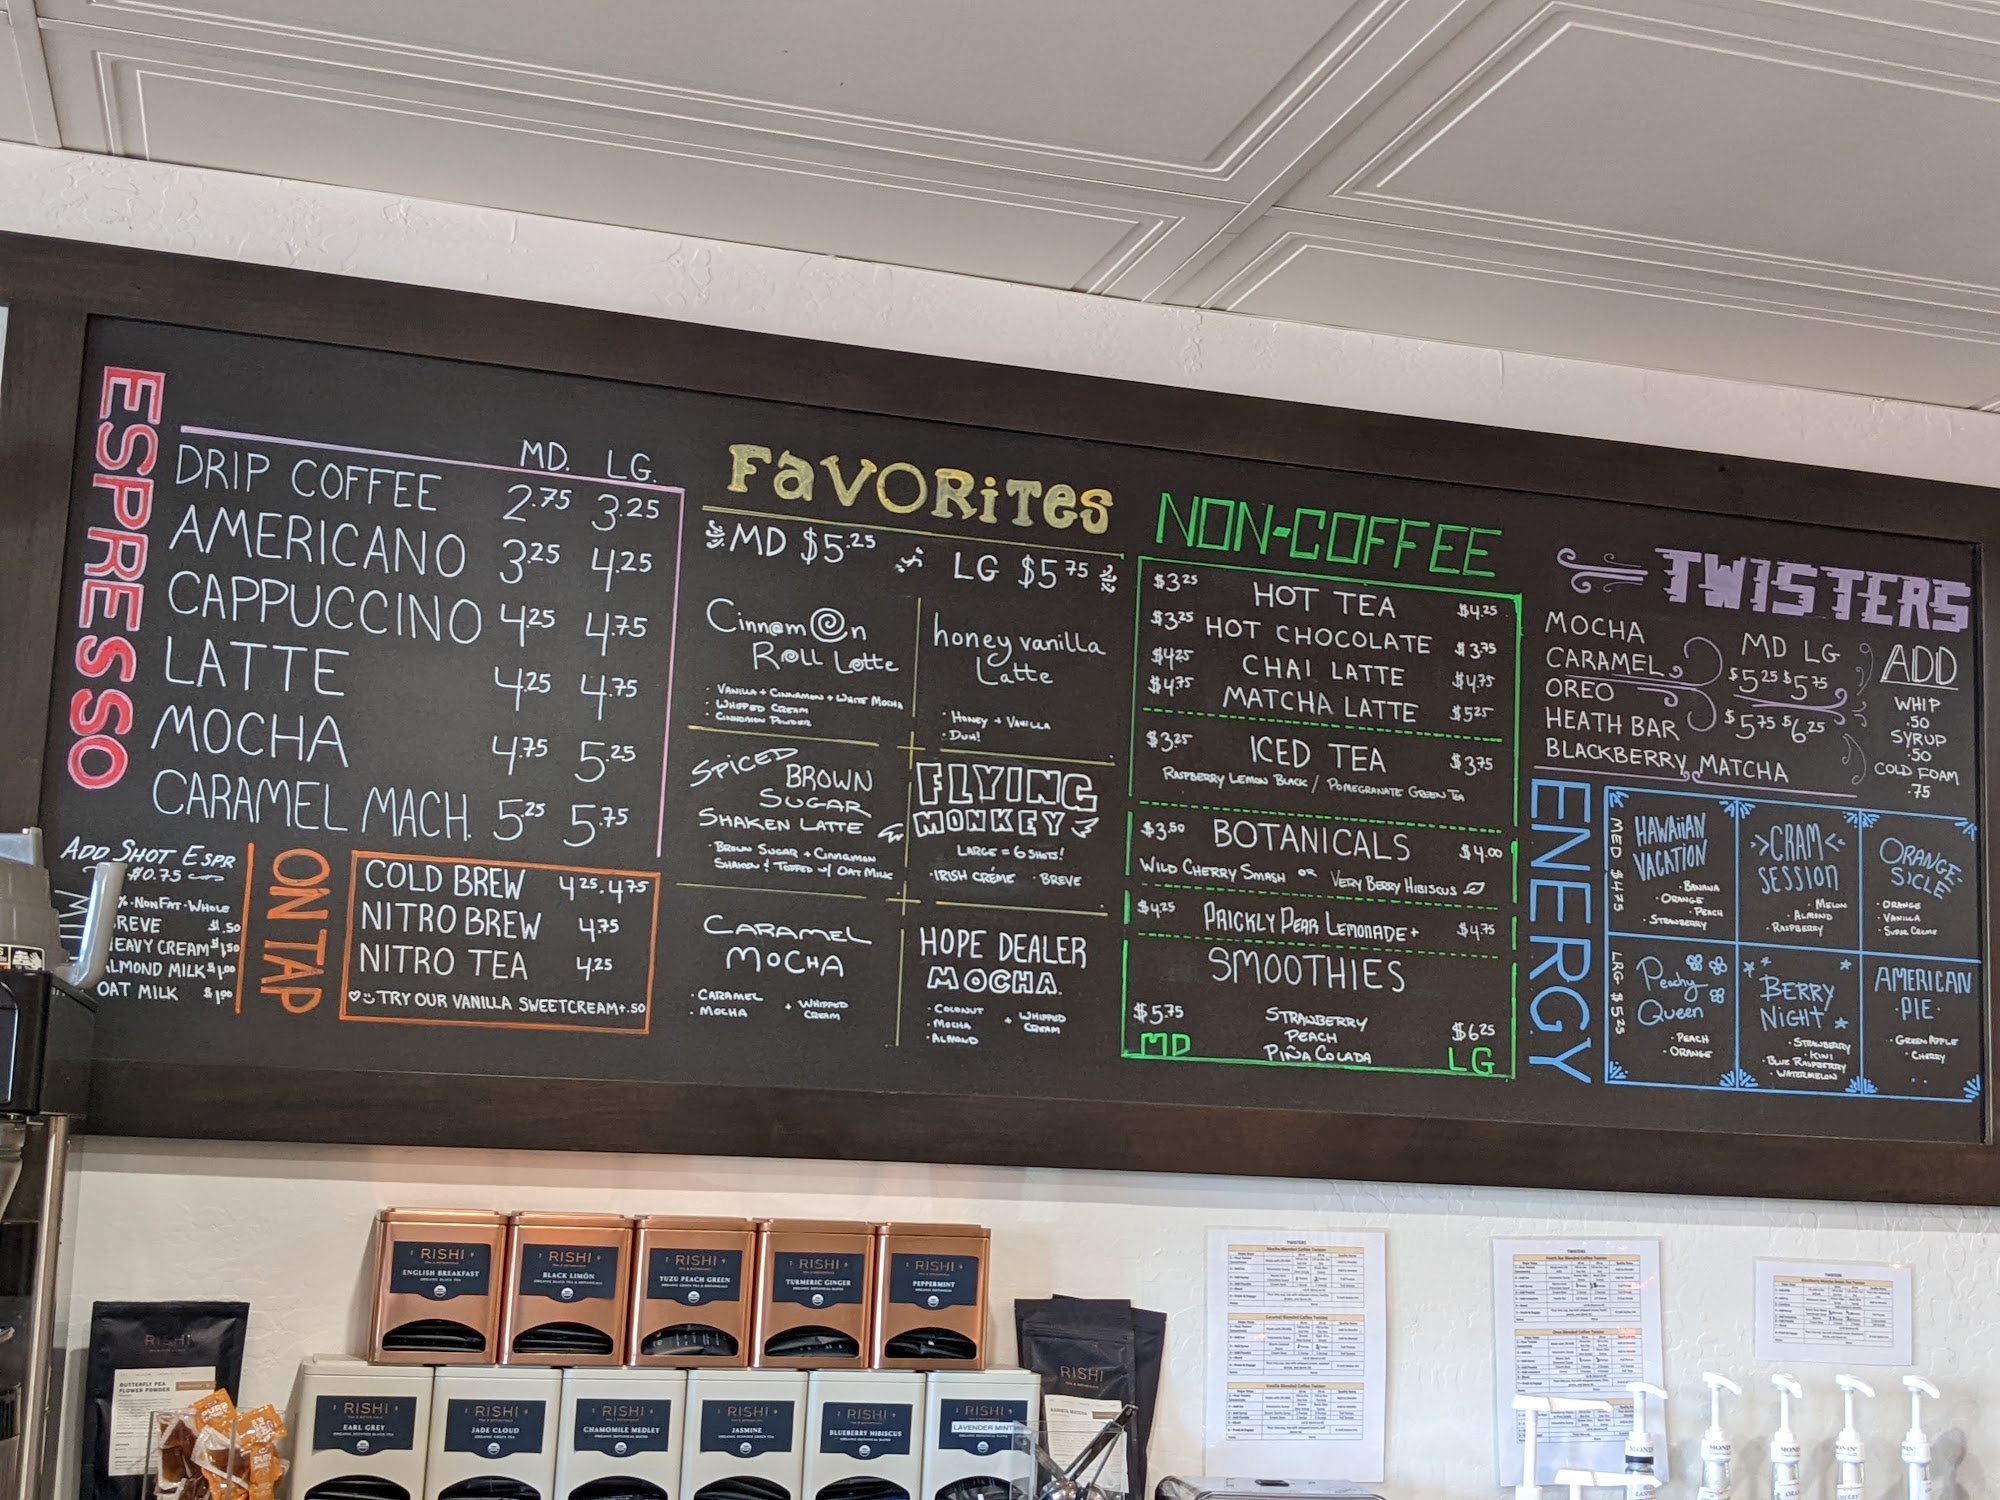 ESPRESSO
MD. LG.
DRIP COFFEE 2.75 3.25
AMERICANO 3.25 4.25
CAPPUCCINO 4.25 4.75
LATTE 4.25 4.75
MOCHA 4.75 5.25
CARAMEL MACH. 5.25 5.75
ADD SHOT ESPR
$0.75
% · NONFAT · WHOLE
BREVE $1.50
HEAVY CREAM $1.50
ALMOND MILK $1.00
OAT MILK $1.00
ON TAP
COLD BREW 4.25 · 4.75
NITRO BREW 4.75
NITRO TEA 4.25
TRY OUR VANILLA SWEETCREAM +.50
FAVORITES
MD $5.25 LG $5.75
Cinnamon
Roll Latte
· VANILLA + CINNAMON + WHITE MOCHA
· WHIPPED CREAM
· CINNAMON POWDER
honey vanilla
Latte
· HONEY + VANILLA
· DUH!
SPICED BROWN
SUGAR
SHAKEN LATTE
· BROWN SUGAR + CINNAMON
SHAKEN & TOPPED W/ OAT MILK
FLYING
MONKEY
LARGE = 6 SHOTS!
· IRISH CRÉME · BREVE
CARAMEL
MOCHA
· CARAMEL
· MOCHA
+ WHIPPED
CREAM
HOPE DEALER
MOCHA
· COCONUT
· MOCHA
· ALMOND
+ WHIPPED
CREAM
NON-COFFEE
$3.25 HOT TEA $4.25
$3.25 HOT CHOCOLATE $3.75
$4.25 CHAI LATTE $4.75
$4.75 MATCHA LATTE $5.25
$3.25 ICED TEA $3.75
RASPBERRY LEMON BLACK / POMEGRANATE GREEN TEA
$3.50 BOTANICALS $4.00
WILD CHERRY SMASH OR VERY BERRY HIBISCUS
$4.25 PRICKLY PEAR LEMONADE + $4.75
SMOOTHIES
$5.75 STRAWBERRY $6.25
PEACH
PIÑA COLADA
MD LG
TWISTERS
MD LG
MOCHA
CARAMEL $5.25 $5.75
OREO
HEATH BAR $5.75 $6.25
BLACKBERRY MATCHA
ADD
WHIP
.50
SYRUP
.50
COLD FOAM
.75
ENERGY
MED $4.75
LRG $5.25
HAWAiiAN
VACATION
· BANANA
· ORANGE
· PEACH
· STRAWBERRY
>CRAM<
SESSION
· MELON
· ALMOND
· RASPBERRY
ORANGE-
SICLE
· ORANGE
· VANILLA
· SUPER CREME
Peachy
Queen
· PEACH
· ORANGE
BERRY
NIGHT
· STRAWBERRY
· KIWI
· BLUE RASPBERRY
· WATERMELON
AMERICAN
· PIE ·
· GREEN APPLE
· CHERRY
RISHI
ENGLISH BREAKFAST
ORGANIC BLACK TEA
RISHI
BLACK LIMÓN
RISHI
YUZU PEACH GREEN
RISHI
TURMERIC GINGER
ORGANIC BOTANICAL BLEND
RISHI
PEPPERMINT
RISHI
BUTTERFLY PEA
FLOWER POWDER
RISHI
EARL GREY
ORGANIC BLACK TEA
RISHI
JADE CLOUD
ORGANIC GREEN TEA
RISHI
CHAMOMILE MEDLEY
ORGANIC BOTANICAL BLEND
RISHI
JASMINE
RISHI
BLUEBERRY HIBISCUS
ORGANIC BOTANICAL BLEND
RISHI
LAVENDER MINT
RISHI
TWISTERS
Mocha Blended Coffee Twisters
Caramel Blended Coffee Twisters
Vanilla Blended Coffee Twisters
Heath Bar Blended Coffee Twisters
Oreo Blended Coffee Twisters
TWISTERS
Blackberry Matcha Green Tea Twister
MONIN